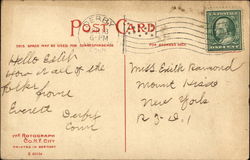 DERBY
6-PM
POST CARD
THIS SPACE MAY BE USED FOR CORRESPONDENCE
FOR ADDRESS ONLY
Hello Esther
How is all of the
folks
from
Everett
Derby
Conn
Miss Esther Raymond
Mount Kisco
New York
R.F.D. 1
THE ROTOGRAPH
CO. N.Y. CITY
PRINTED IN GERMANY